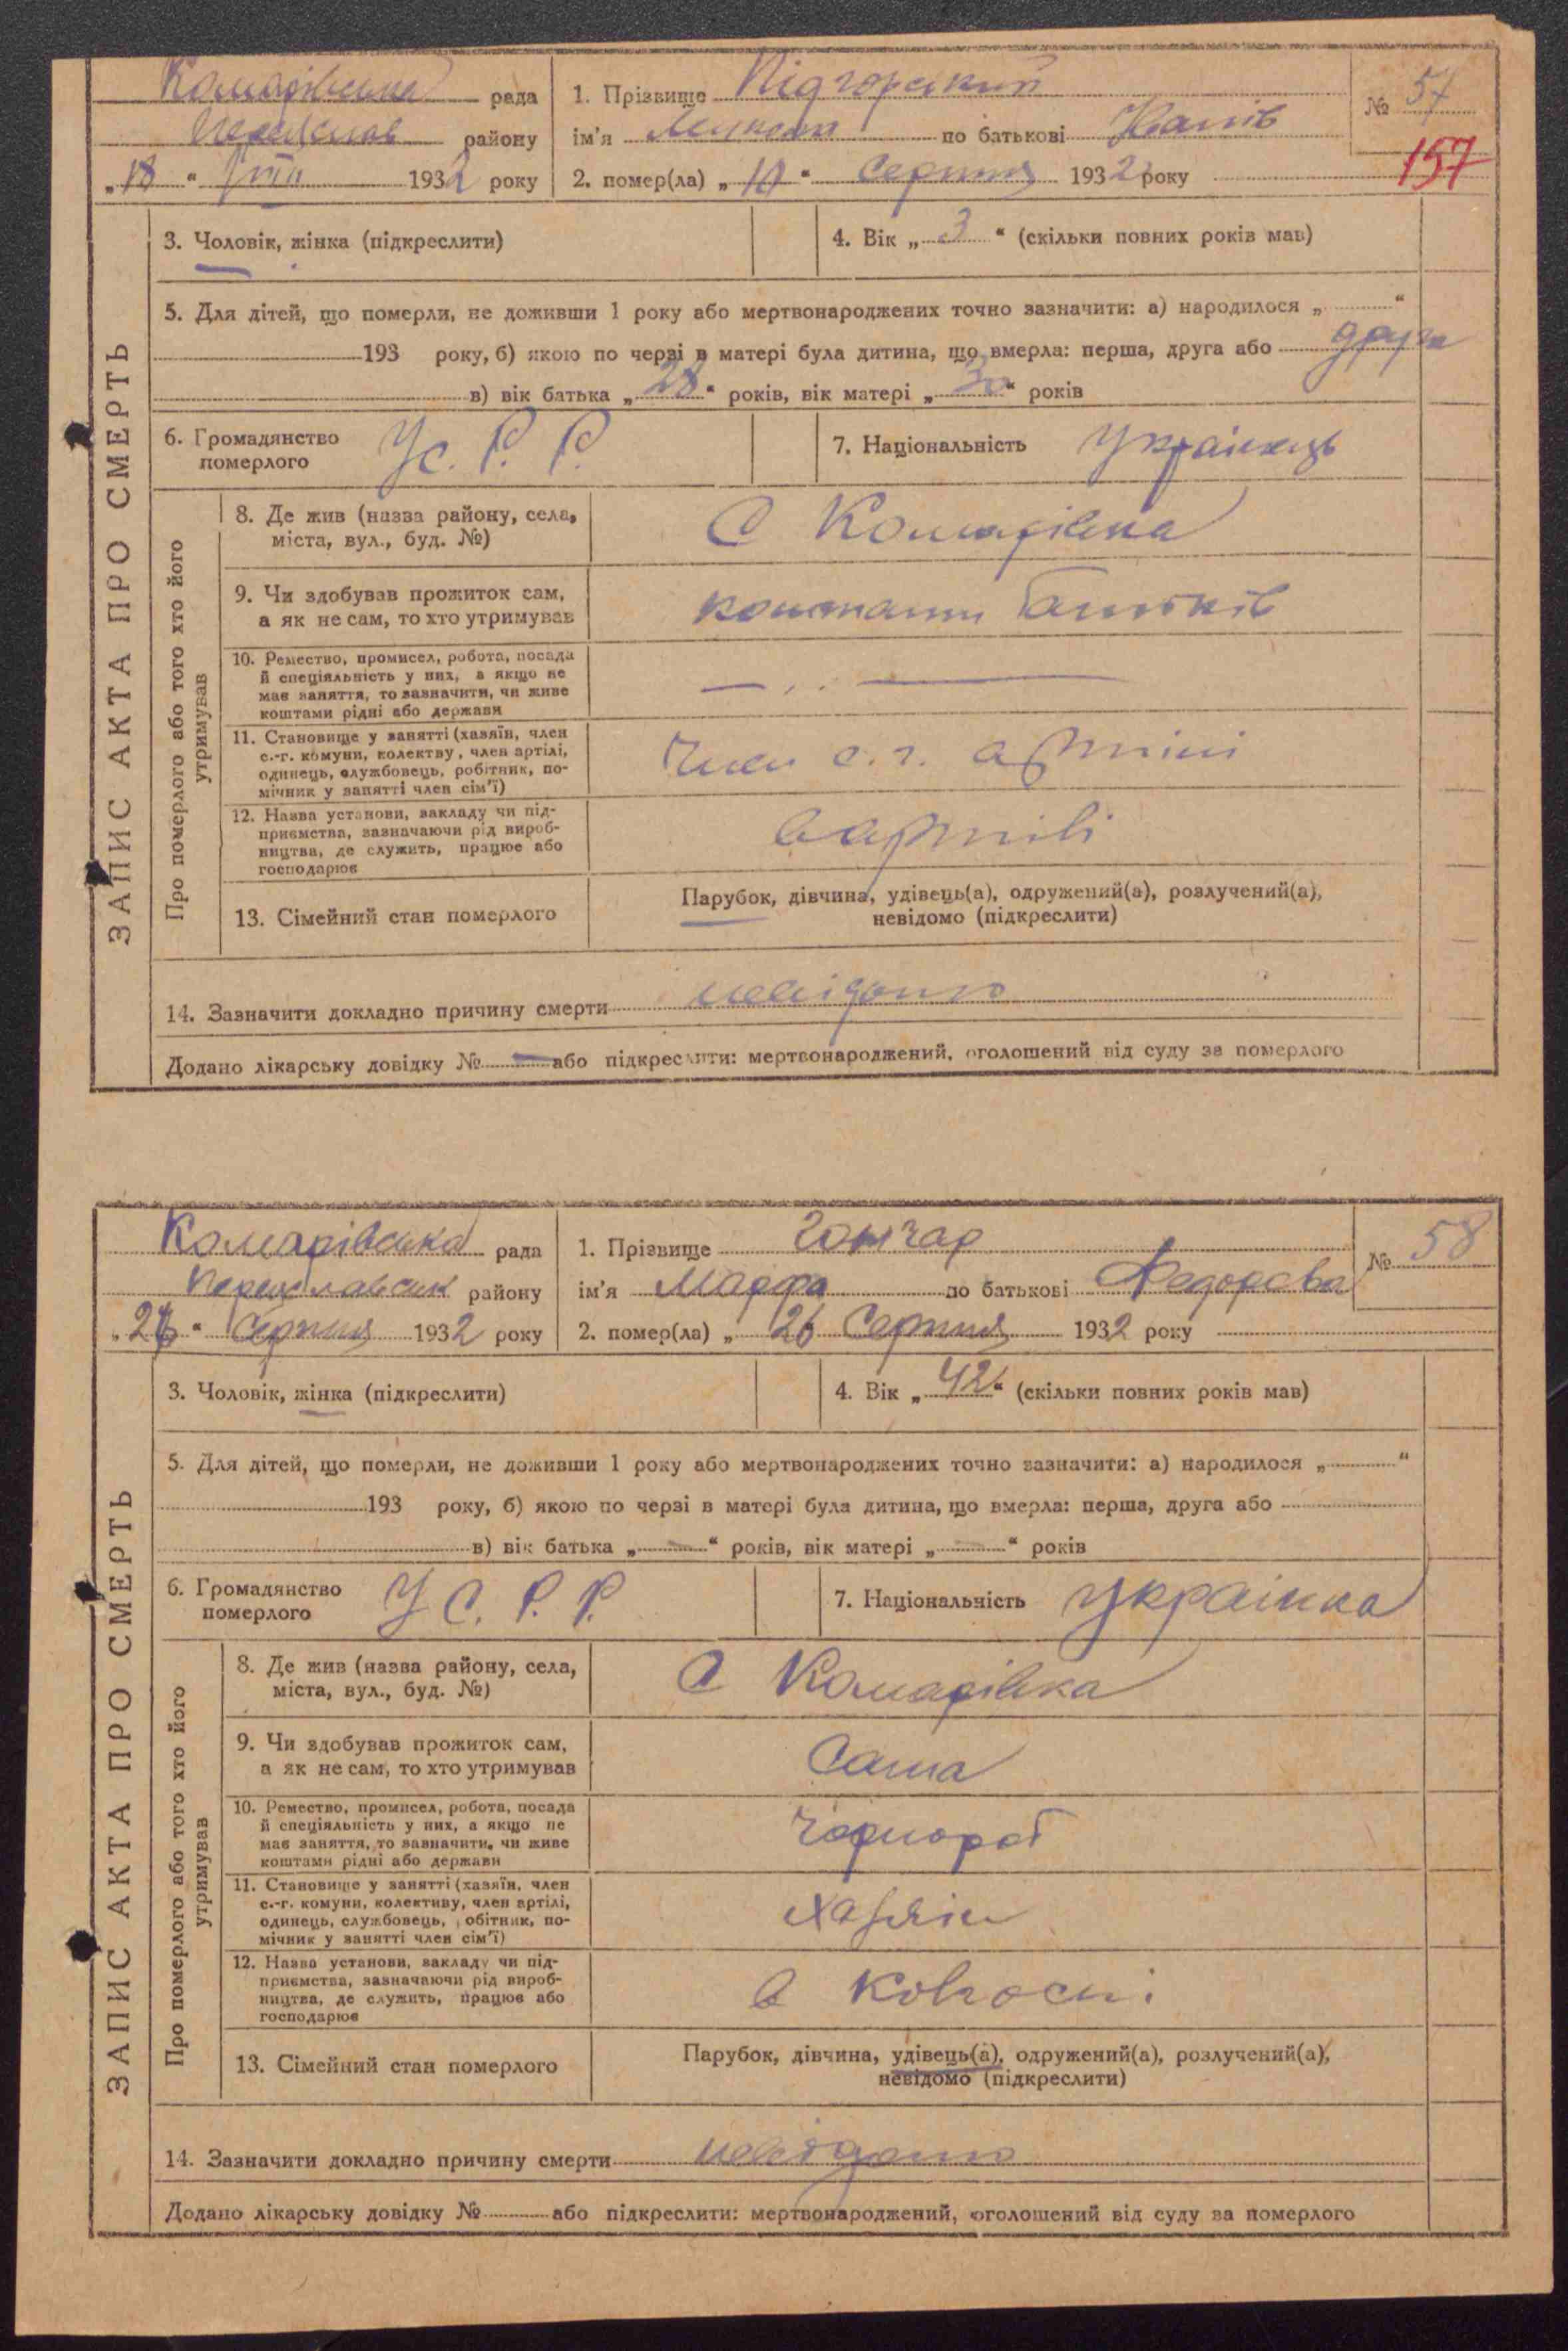 Комарівська рада
району
„18“ VIII 1932 року
1. Прізвище Підгорський
ім'я по батькові
2. помер(ла) „10“ Серпня 1932 року
№ 57
157
ЗАПИС АКТА ПРО СМЕРТЬ
3. Чоловік, жінка (підкреслити)
4. Вік „3“ (скільки повних років мав)
5. Для дітей, що померли, не доживши 1 року або мертвонароджених точно зазначити: а) народилося „ “
193 року, б) якою по черзі в матері була дитина, що вмерла: перша, друга або друга
в) вік батька „28“ років, вік матері „30“ років
6. Громадянство
померлого
Ус. Р. Р.
7. Національність Українець
Про померлого або того хто його
утримував
8. Де жив (назва району, села,
міста, вул., буд. №)
С Комарівка
9. Чи здобував прожиток сам,
а як не сам, то хто утримував
коштами батьків
10. Ремество, промисел, робота, посада
й спеціяльність у них, а якщо не
має заняття, то зазначити, чи живе
коштами рідні або держави
11. Становище у занятті (хазяїн, член
с.-г. комуни, колектву, член артілі,
одинець, службовець, робітник, по-
мічник у занятті член сім'ї)
Член с. г. артілі
12. Назва установи, закладу чи під-
приємства, зазначаючи рід вироб-
ництва, де служить, працює або
господарює
в артілі
13. Сімейний стан померлого
Парубок, дівчина, удівець(а), одружений(а), розлучений(а),
невідомо (підкреслити)
14. Зазначити докладно причину смерти невідомо
Додано лікарську довідку № — або підкреслити: мертвонароджений, оголошений від суду за померлого
Комарівська рада
Переяславськ району
„26“ Серпня 1932 року
1. Прізвище Гончар
ім'я Марфа по батькові Федорова
2. помер(ла) „ 26 Серпня 1932 року
№ 58
ЗАПИС АКТА ПРО СМЕРТЬ
3. Чоловік, жінка (підкреслити)
4. Вік „42“ (скільки повних років мав)
5. Для дітей, що померли, не доживши 1 року або мертвонароджених точно зазначити: а) народилося „ “
193 року, б) якою по черзі в матері була дитина, що вмерла: перша, друга або
в) вік батька „—“ років, вік матері „—“ років
6. Громадянство
померлого
У С. Р. Р.
7. Національність Українка
Про померлого або того хто його
утримував
8. Де жив (назва району, села,
міста, вул., буд. №)
С Комарівка
9. Чи здобував прожиток сам,
а як не сам, то хто утримував
Сама
10. Ремество, промисел, робота, посада
й спеціяльність у них, а якщо не
має заняття, то зазначити, чи живе
коштами рідні або держави
Чорнороб
11. Становище у занятті (хазяїн, член
с.-г. комуни, колективу, член артілі,
одинець, службовець, робітник, по-
мічник у занятті член сім'ї)
хазяін
12. Назва установи, закладу чи під-
приємства, зазначаючи рід вироб-
ництва, де служить, працює або
господарює
в
13. Сімейний стан померлого
Парубок, дівчина, удівець(а), одружений(а), розлучений(а),
невідомо (підкреслити)
14. Зазначити докладно причину смерти невідомо
Додано лікарську довідку № або підкреслити: мертвонароджений, оголошений від суду за померлого